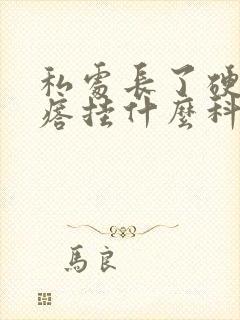 私處長了硬
痞掛什麼科
馬良